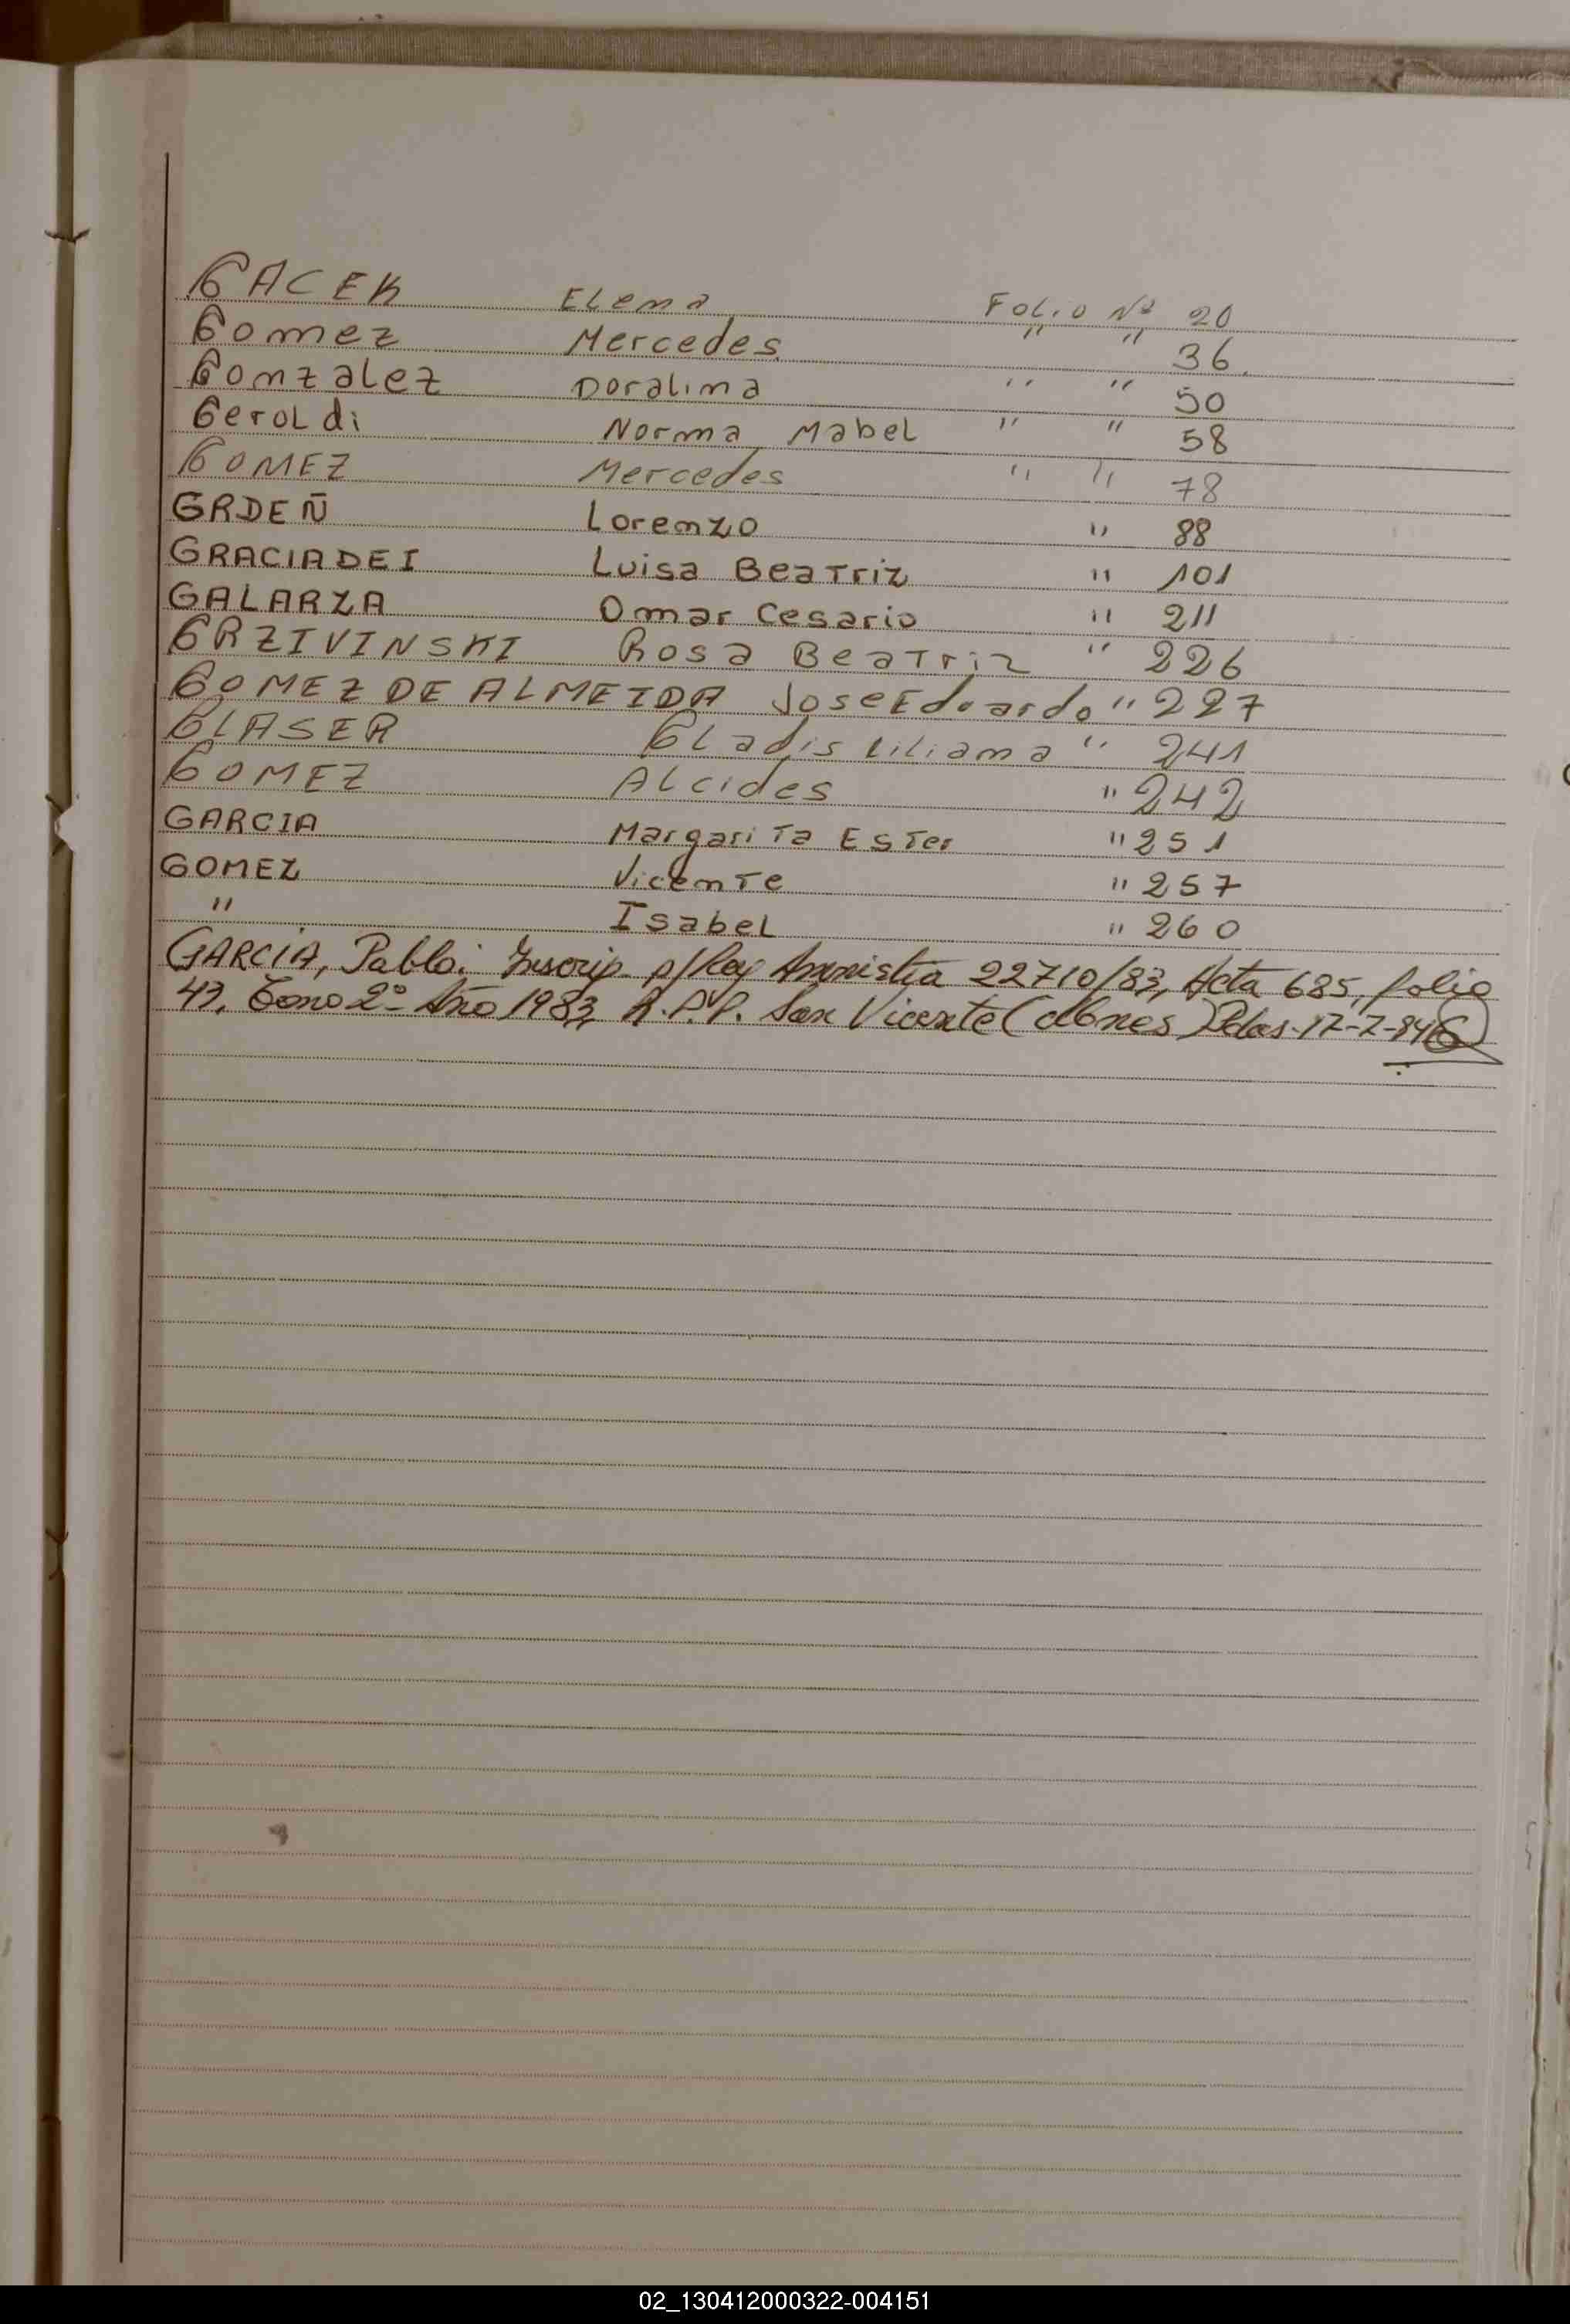 GACEK Elena Folio Nº 20
Gomez Mercedes " " 36.
Gonzalez Doralina " " 50
Geroldi Norma Mabel " " 58
GOMEZ Mercedes " " 78
GRDEÑ Lorenzo " 88
GRACIADEI Luisa Beatriz " 101
GALARZA Omar Cesario " 211
GRZIVINSKI Rosa Beatriz " 226
GOMEZ DE ALMEIDA Jose Eduardo " 227
GLASER Gladis Liliana " 241
GOMEZ Alcides " 242
GARCIA Margarita Ester " 251
GOMEZ Vicente " 257
" Isabel " 260
GARCÍA, Pablo: Inscrip. p/Ley Amnistía 22710/83, Acta 685, folio
43, Tomo 2º Año 1983, R.P.P. San Vicente 17-7-84
02_130412000322-004151